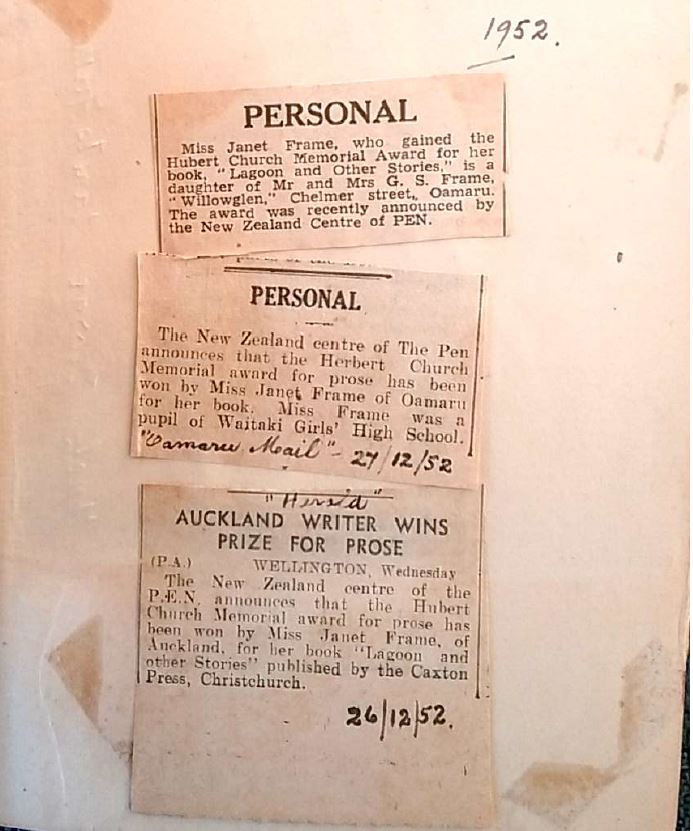 1952.
PERSONAL
Miss Janet Frame, who gained the
Hubert Church Memorial Award for her
book, "Lagoon and Other Stories," is a
daughter of Mr and Mrs G. S. Frame,
"Willowglen," Chelmer street, Oamaru.
The award was recently announced by
the New Zealand Centre of PEN.
PERSONAL
The New Zealand centre of The Pen
announces that the Herbert Church
Memorial award for prose has been
won by Miss Janet Frame of Oamaru
for her book. Miss Frame was a
pupil of Waitaki Girls' High School.
"Oamaru Mail" - 27/12/52
"Herald"
AUCKLAND WRITER WINS
PRIZE FOR PROSE
(P.A.) WELLINGTON, Wednesday
The New Zealand centre of the
P.E.N. announces that the Hubert
Church Memorial award for prose has
been won by Miss Janet Frame, of
Auckland, for her book "Lagoon and
other Stories" published by the Caxton
Press, Christchurch.
26/12/52.